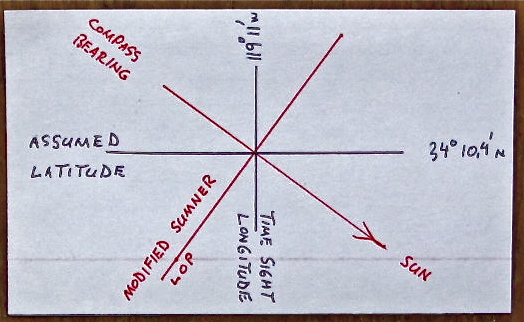 COMPASS
BEARING
119° 11' W
ASSUMED
LATITUDE
34° 10.4' N
MODIFIED SUMNER
LOP
TIME SIGHT
LONGITUDE
SUN